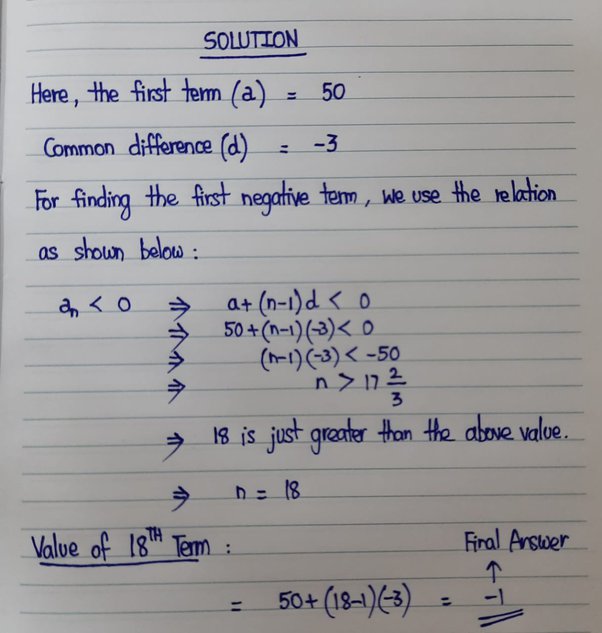 SOLUTION
Here, the first term (a) = 50
Common difference (d) = -3
For finding the first negative term, we use the relation
as shown below :
aₙ < 0 ⇒ a+(n-1)d < 0
⇒ 50+(n-1)(-3) < 0
⇒ (n-1)(-3) < -50
⇒ n > 17 2/3
⇒ 18 is just greater than the above value.
⇒ n = 18
Value of 18TH Term :
Final Answer
↑
= 50+(18-1)(-3) = -1